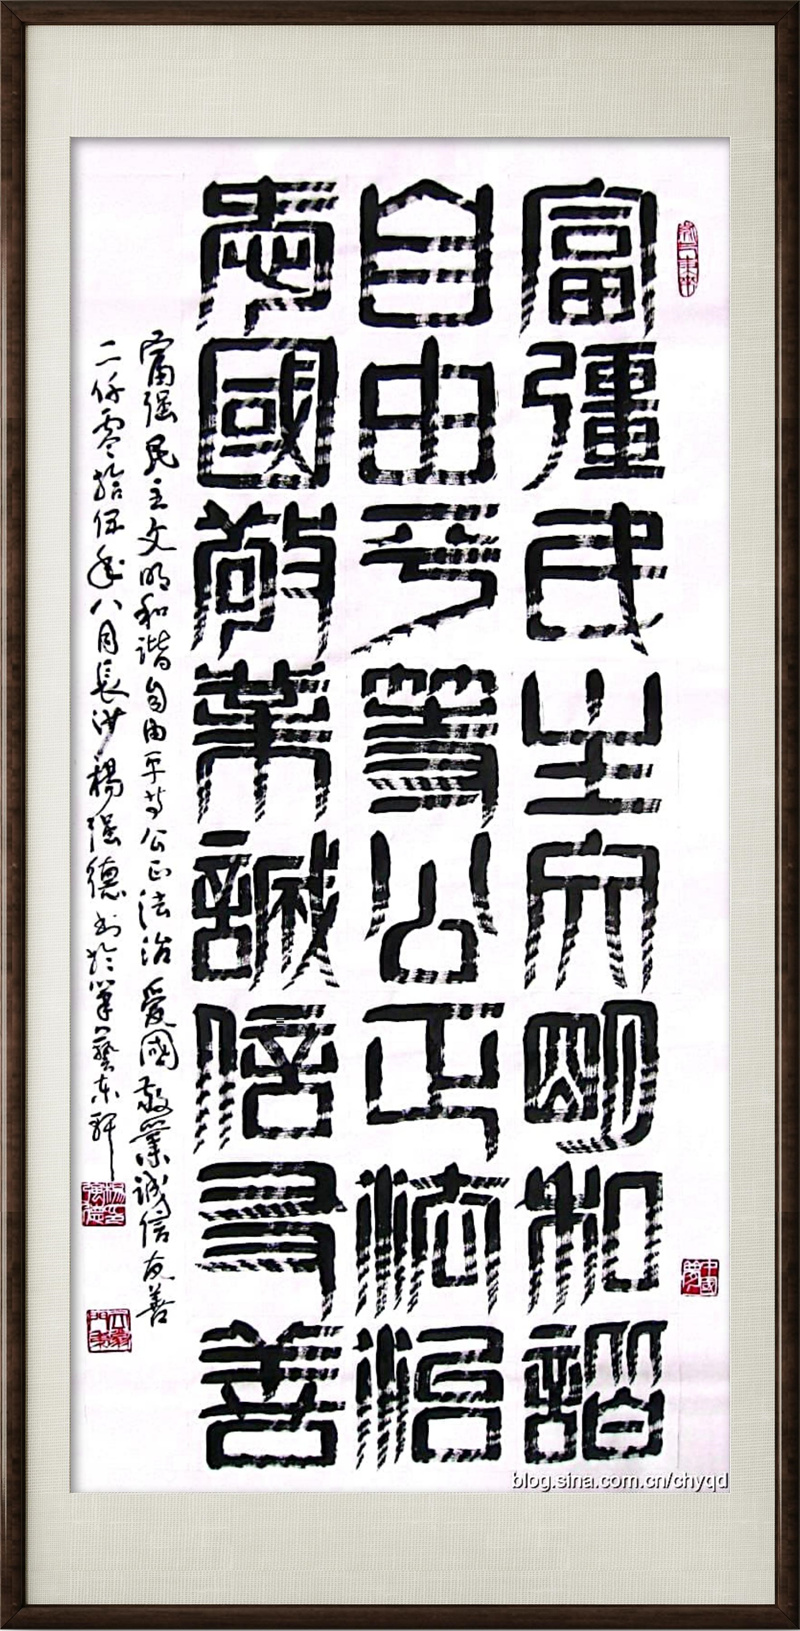 富彊民主文明和諧
自由平等公正法治
愛國敬業誠信友善
富强民主文明和谐自由平等公正法治愛國敬業诚信友善
二仟零拾伍年八月長沙楊强德书於筆藝东軒
中國夢
blog.sina.com.cn/chyqd